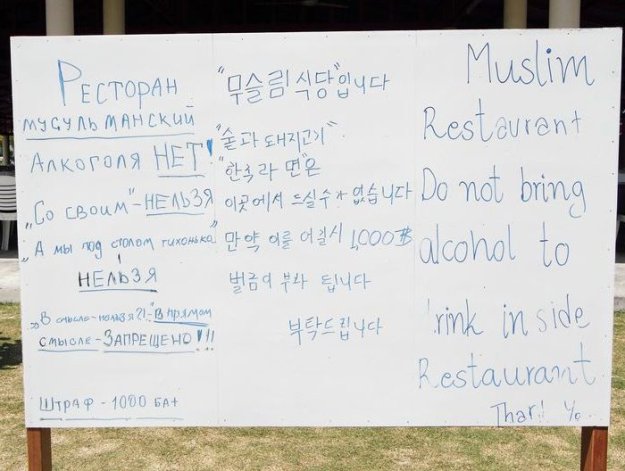 Ресторан
мусульманский
Алкоголя НЕТ!
„Со своим" - нельзя
„А мы под столом тихонько"
нельзя
„В смысле - нельзя?!" - "В прямом
смысле - Запрещено!!!
Штраф - 1000 бат
"무슬림 식당"입니다
"술과 돼지고기"
"한국라면"은
이곳에서 드실수가 없습니다
만약 이를 어길시 1,000฿
벌금이 부과 됩니다
부탁드립니다
Muslim
Restaurant
Do not bring
alcohol to
rink in side
Restaurant